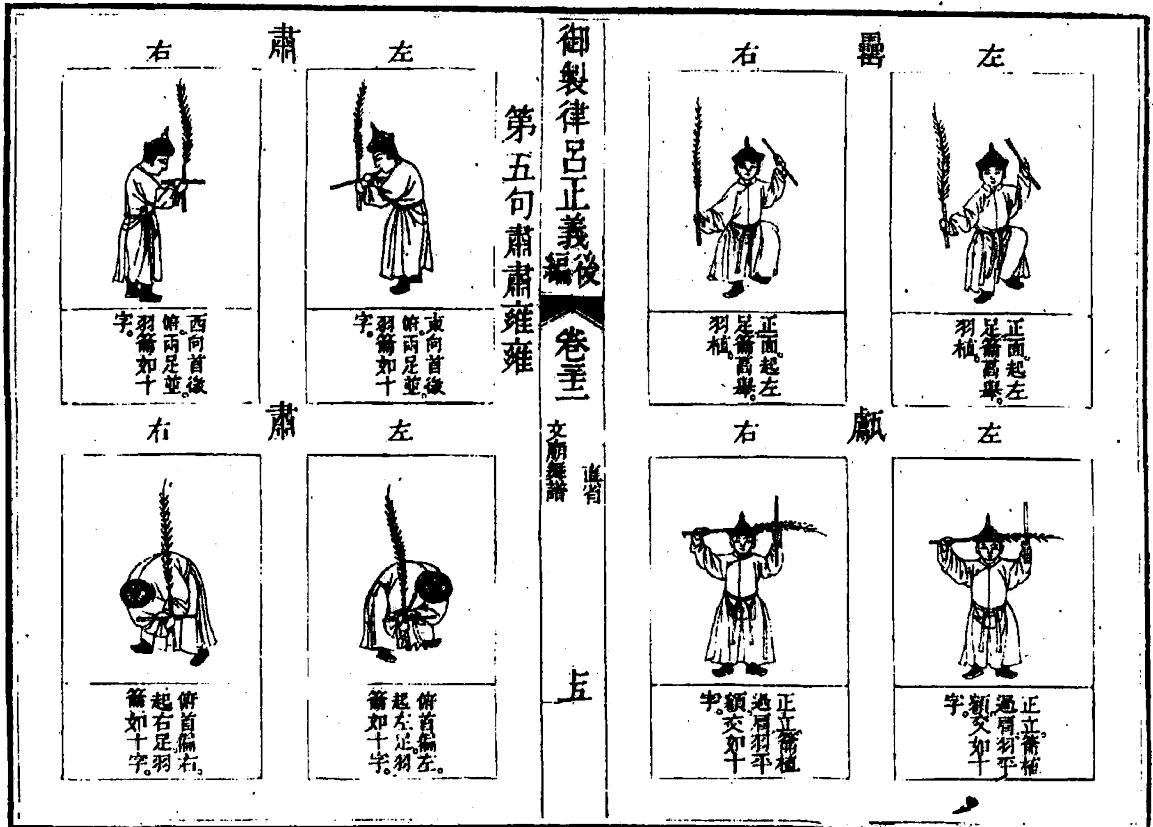 罍
左
正面起左
足籥高舉。
羽植。
右
正面起左
足籥高舉。
羽植。
甗
左
正立籥植
過肩羽平
額交如十
字。
右
正立籥植
過肩羽平
額交如十
字。
御製律呂正義後編
卷
直省
文廟舞譜
五
第五句肅肅雍雍
肅
左
東向首微
俯兩足並。
羽籥如十
字。
右
西向首微
俯兩足並。
羽籥如十
字。
肅
左
俯首偏左。
起左足。羽
籥如十字。
右
俯首偏右。
起右足。羽
籥如十字。